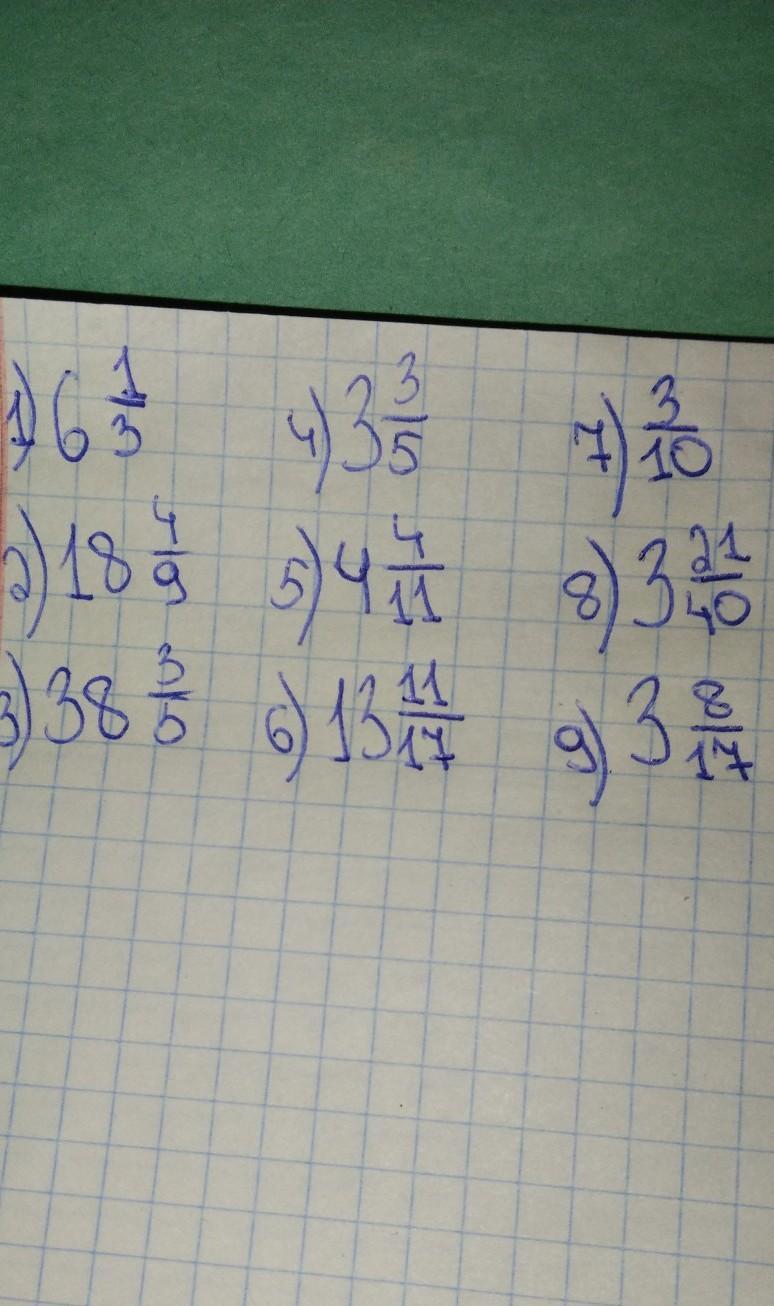 1) 6 1/3
2) 18 4/9
3) 38 3/5
4) 3 3/5
5) 4 4/11
6) 13 11/17
7) 3/10
8) 3 21/40
9) 3 8/17